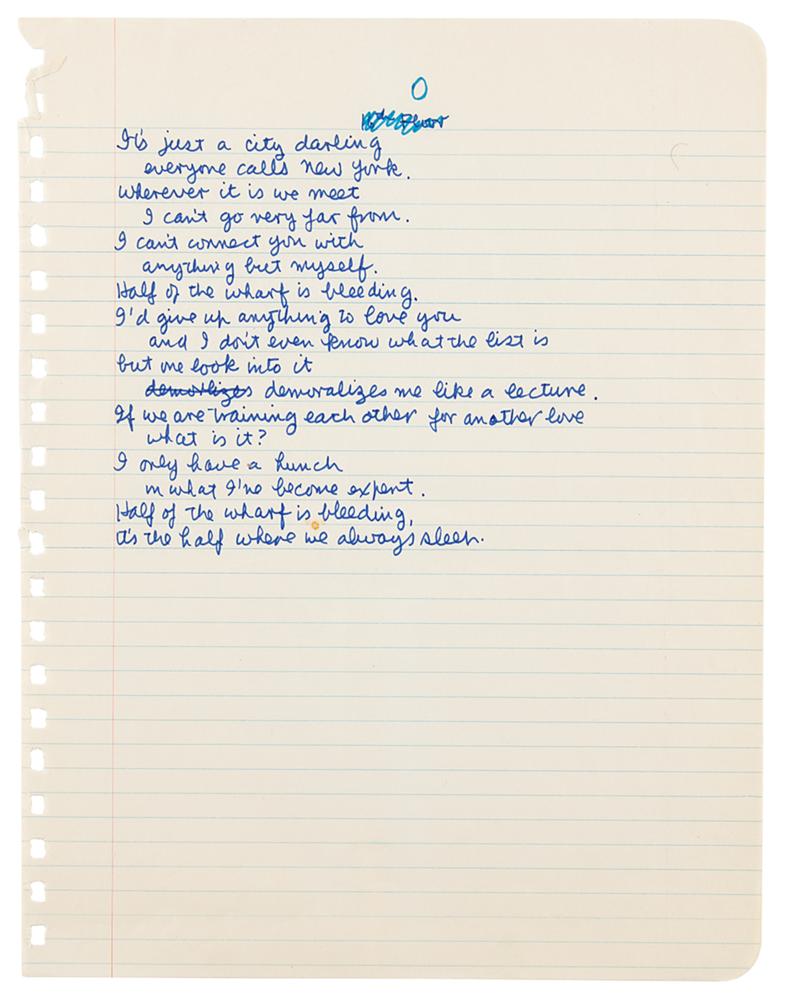 O
It's just a city darling
everyone calls New York.
Wherever it is we meet
I can't go very far from.
I can't connect you with
anything but myself.
Half of the wharf is bleeding.
I'd give up anything to love you
and I don't even know what the list is
but one look into it
demoralizes demoralizes me like a lecture.
If we are training each other for another love
what is it?
I only have a hunch
in what I've become expert.
Half of the wharf is bleeding,
it's the half where we always sleep.